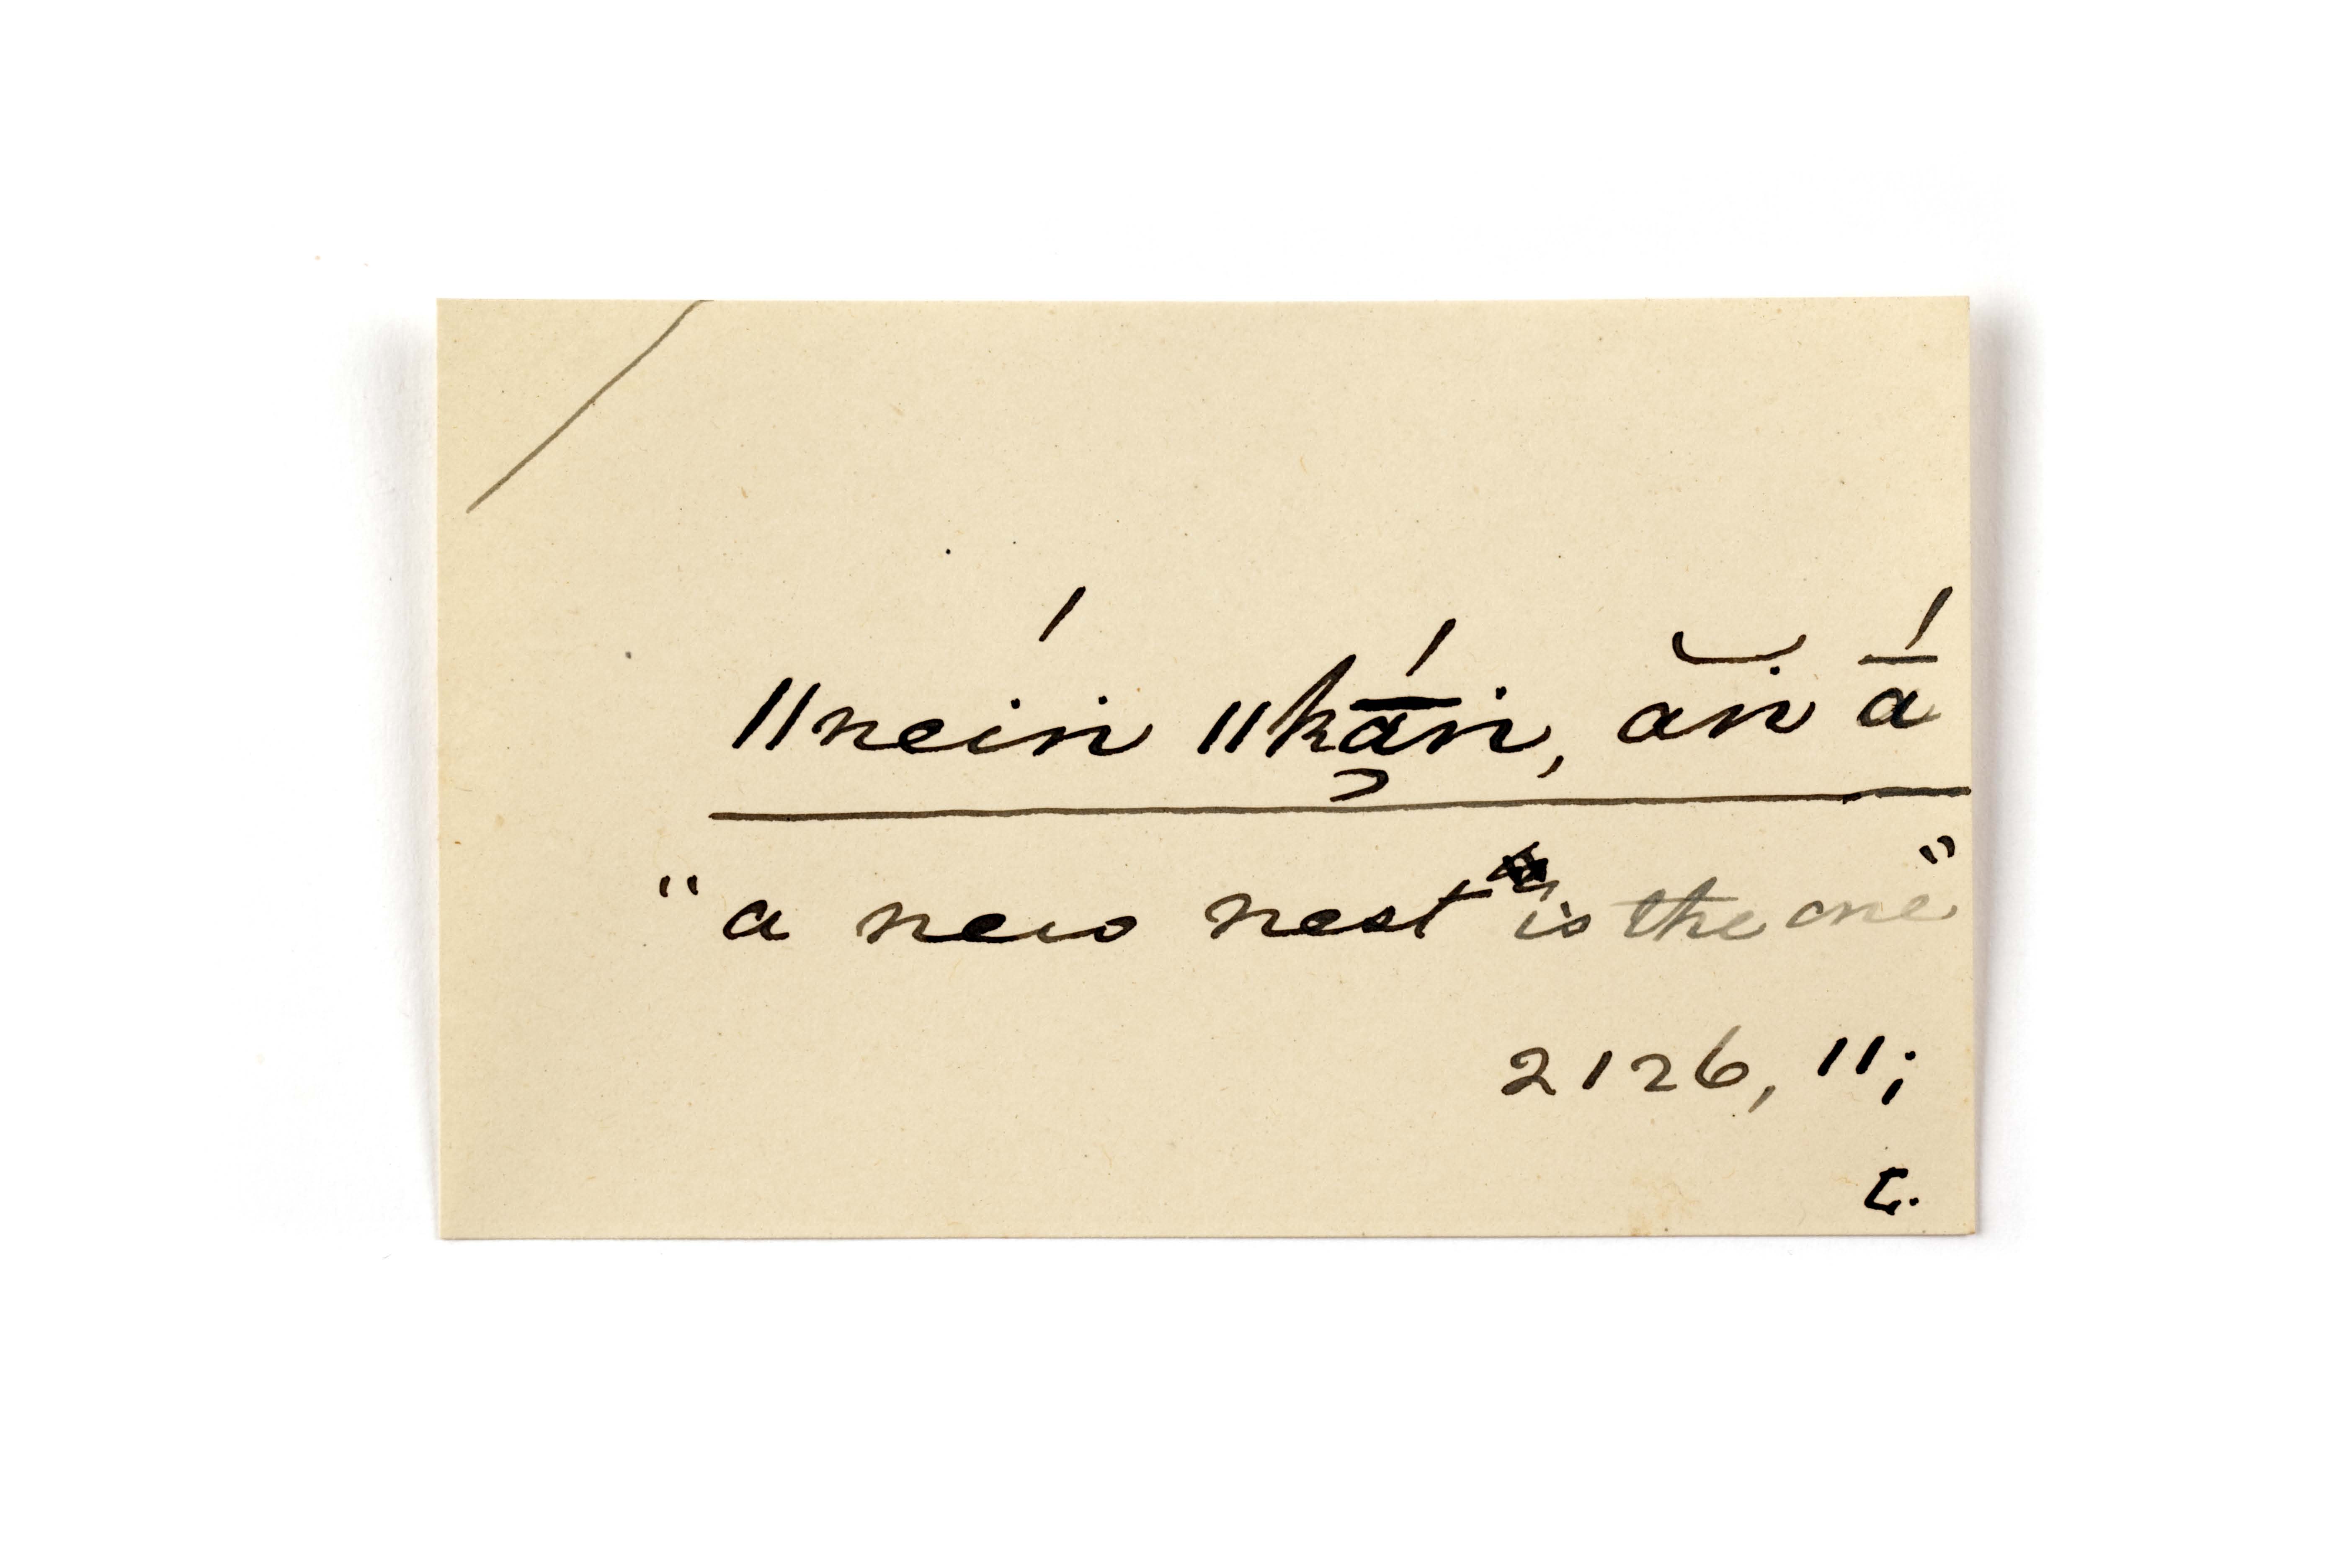 ǁnéiṅ ǁkā̠́ṅ, ăṅ ā́
"a new nest is the one"
2126, 11;
L.